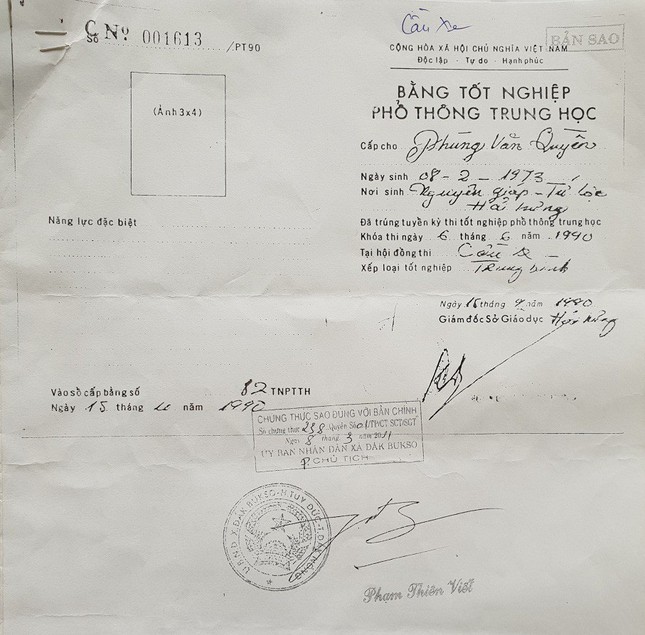 Cầu Xe
BẢN SAO
C Nº 001613 /PT90
Số
CỘNG HÒA XÃ HỘI CHỦ NGHĨA VIỆT NAM
Độc lập - Tự do - Hạnh phúc
(Ảnh 3x4)
BẰNG TỐT NGHIỆP
PHỔ THÔNG TRUNG HỌC
Cấp cho Phùng Văn Quyền
Ngày sinh 08 - 2 - 1973
Nơi sinh Nguyên Giáp - Tứ Lộc
Hải Hưng
Năng lực đặc biệt
Đã trúng tuyển kỳ thi tốt nghiệp phổ thông trung học
Khóa thi ngày 6 tháng 6 năm 1990
Tại hội đồng thi Cầu Xe
Xếp loại tốt nghiệp Trung bình
Ngày 15 tháng 9 năm 1990
Giám đốc Sở Giáo dục Hải Hưng
Vào sổ cấp bằng số 82 TNPTTH
Ngày 15 tháng năm 1990
CHỨNG THỰC SAO ĐÚNG VỚI BẢN CHÍNH
Số chứng thực 238 Quyển Số 01/TPCT SCT/SGT
Ngày 8 tháng 3 năm 2011
ỦY BAN NHÂN DÂN XÃ ĐẮK BUKSO
P CHỦ TỊCH
U.B.N.D X.ĐẮK BUKSO-H.TUY ĐỨC-T.ĐẮK NÔNG
Phạm Thiên Viết